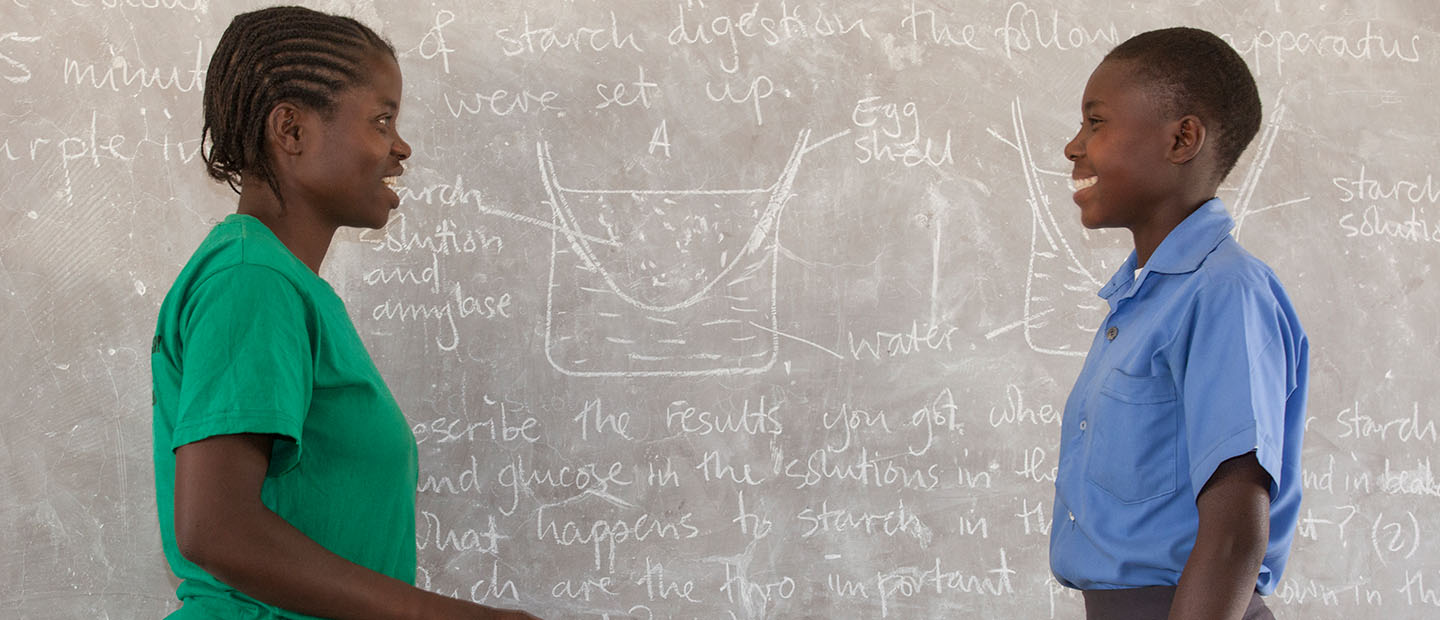 & starch digestion the follow apparatus
5 minut were set up
A
Egg
shell
starch
solution
and
amylase
water
starch
solution
escribe the results you got whe r starch
and glucose in the solutions in the nd in beak
What happens to starch in th t? (2)
are the two important p own in th